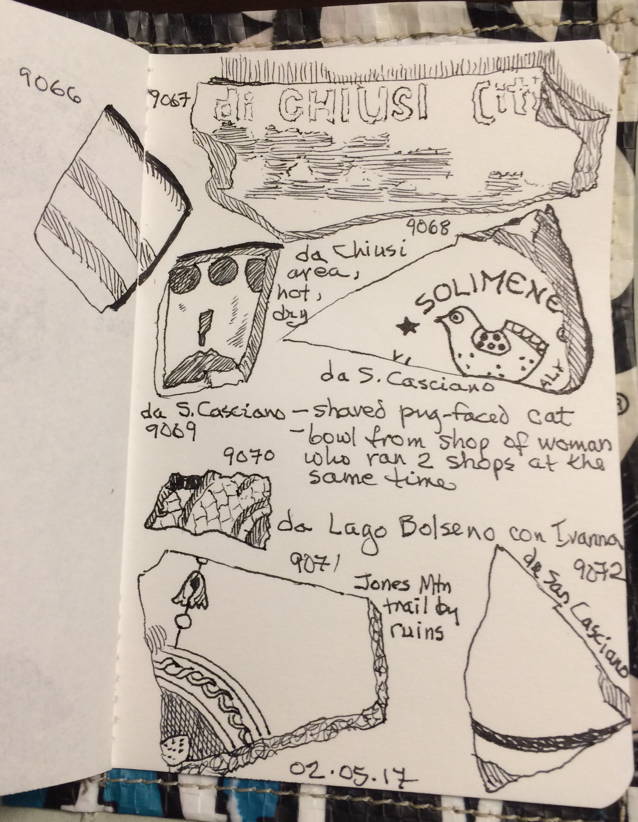 9066
9067
di CHIUSI Citt
9068
da Chiusi
area,
hot,
dry
SOLIMENE
ALT
da S. Casciano
da S. Casciano
9069
- shaved pug-faced cat
- bowl from shop of woman
who ran 2 shops at the
same time
9070
da Lago Bolseno con Ivanna
9071
Jones Mtn
trail by
ruins
9072
da San Casciano
02.05.17